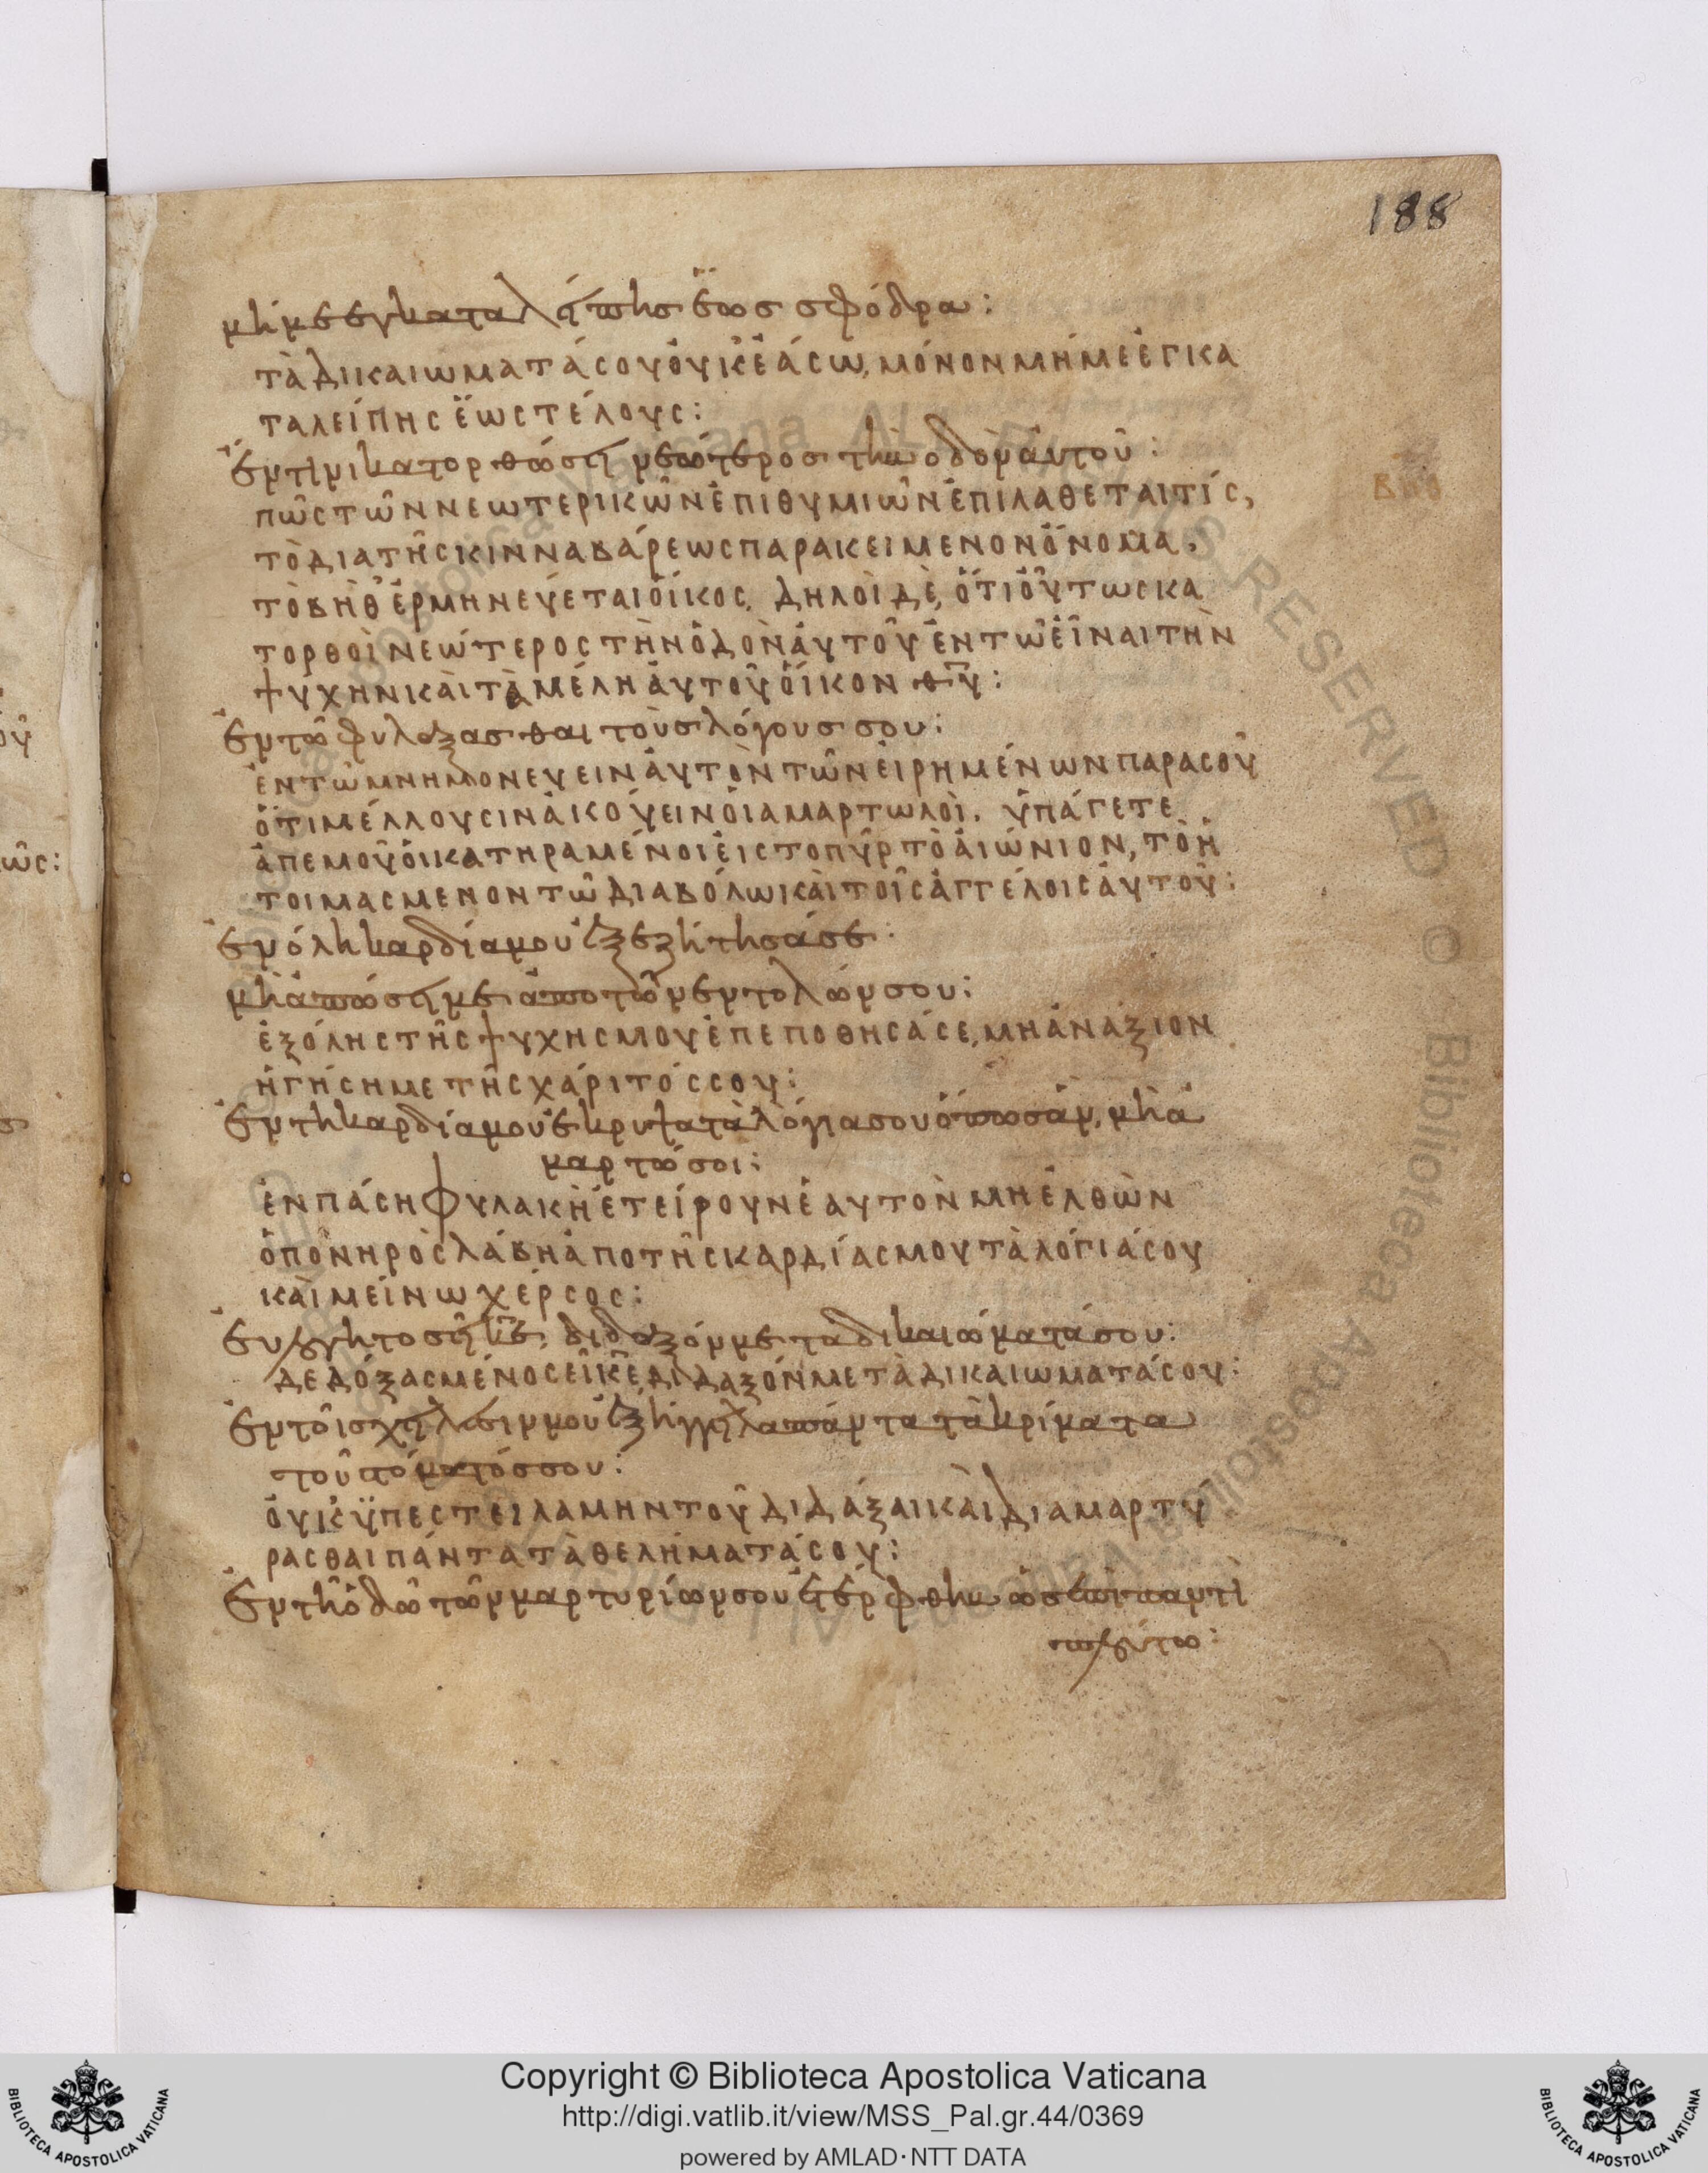 188
μή με ἐγκαταλείπῃς ἕως σφόδρα:
τὰ δικαιωματά σου οὐκ ἐάσω, μόνον μή με ἐγκα
ταλείπης ἕως τέλους:
Ἐν τίνι κατορθώσει νεώτερος τὴν ὁδὸν αὐτοῦ:
πῶς τῶν νεωτερικῶν ἐπιθυμιῶν ἐπιλαθεται τίς,
βηθ
τὸ δια τῆς κινναβάρεως παρακειμενον ὄνομα,
τὸ βὴθ ἑρμηνεύεται οἶκος. δηλοὶ δὲ, ὅτι οὕτως κα
τορθοὶ νεώτερος τὴν ὁδὸν αὐτοῦ ἐν τῶ εἶναι τὴν
ψυχὴν καὶ τὰ μέλη αὐτοῦ οἶκον θυ:
Ἐν τῶ φυλαξασθαι τοὺς λόγους σου:
ἐν τῶ μνημονευειν αὐτὸν τῶν εἰρημένων παρα σοῦ
ὅτι μέλλουσιν ἀκούειν οἱ αμαρτωλοὶ. ὑπάγετε
ἀπ εμοῦ οἱ κατηραμένοι εἰς το πῦρ τὸ αἰώνιον, τὸ ἡ
τοιμασμενον τῶ διαβόλω καὶ τοῖς ἀγγέλοις αὐτοῦ:
Ἐν όλη καρδία μου ἐξεζήτησά σε:
μὴ ἀπώσῃ με ἀπο τῶν εντολών σου:
ἐξ όλης τῆς ψυχης μου ἐπεποθησά σε, μη ἀναξιον
ἡγήση με τῆς χάριτός σου:
Ἐν τη καρδία μου ἔκρυψα τὰ λόγια σου όπως ἂν, μὴ ἁ
μαρτώ σοι:
ἐν πάση φυλακῆ ἐτείρουν ἐαυτὸν μη ἐλθὼν
ὁ πονηρὸς λάβη ἀπο τῆς καρδίας μου τὰ λόγιά σου
καὶ μείνω χέρσος:
Ἐυλογητος εἶ κε, διδαξόν με τα δικαιώματά σου:
δεδόξασμένος εῖ κε διδαξόν με τὰ δικαιωματά σου:
Ἐν τοῖς χείλεσιν μου ἐξήγγειλα πάντα τὰ κρίματα
τοῦ στόματός σου:
οὐκ ὑπεστειλαμην τοῦ διδάξαι καὶ διαμαρτυ
ρασθαι πάντα τὰ θελήματά σου:
Ἐν τῆ ὁδῶ τῶν μαρτυρίων σου ἐτέρφθην ὡς ἐπὶ παντὶ
πλούτω:
Copyright © Biblioteca Apostolica Vaticana
http://digi.vatlib.it/view/MSS_Pal.gr.44/0369
powered by AMLAD·NTT DATA
BIBLIOTECA APOSTOLICA VATICANA
BIBLIOTECA APOSTOLICA VATICANA